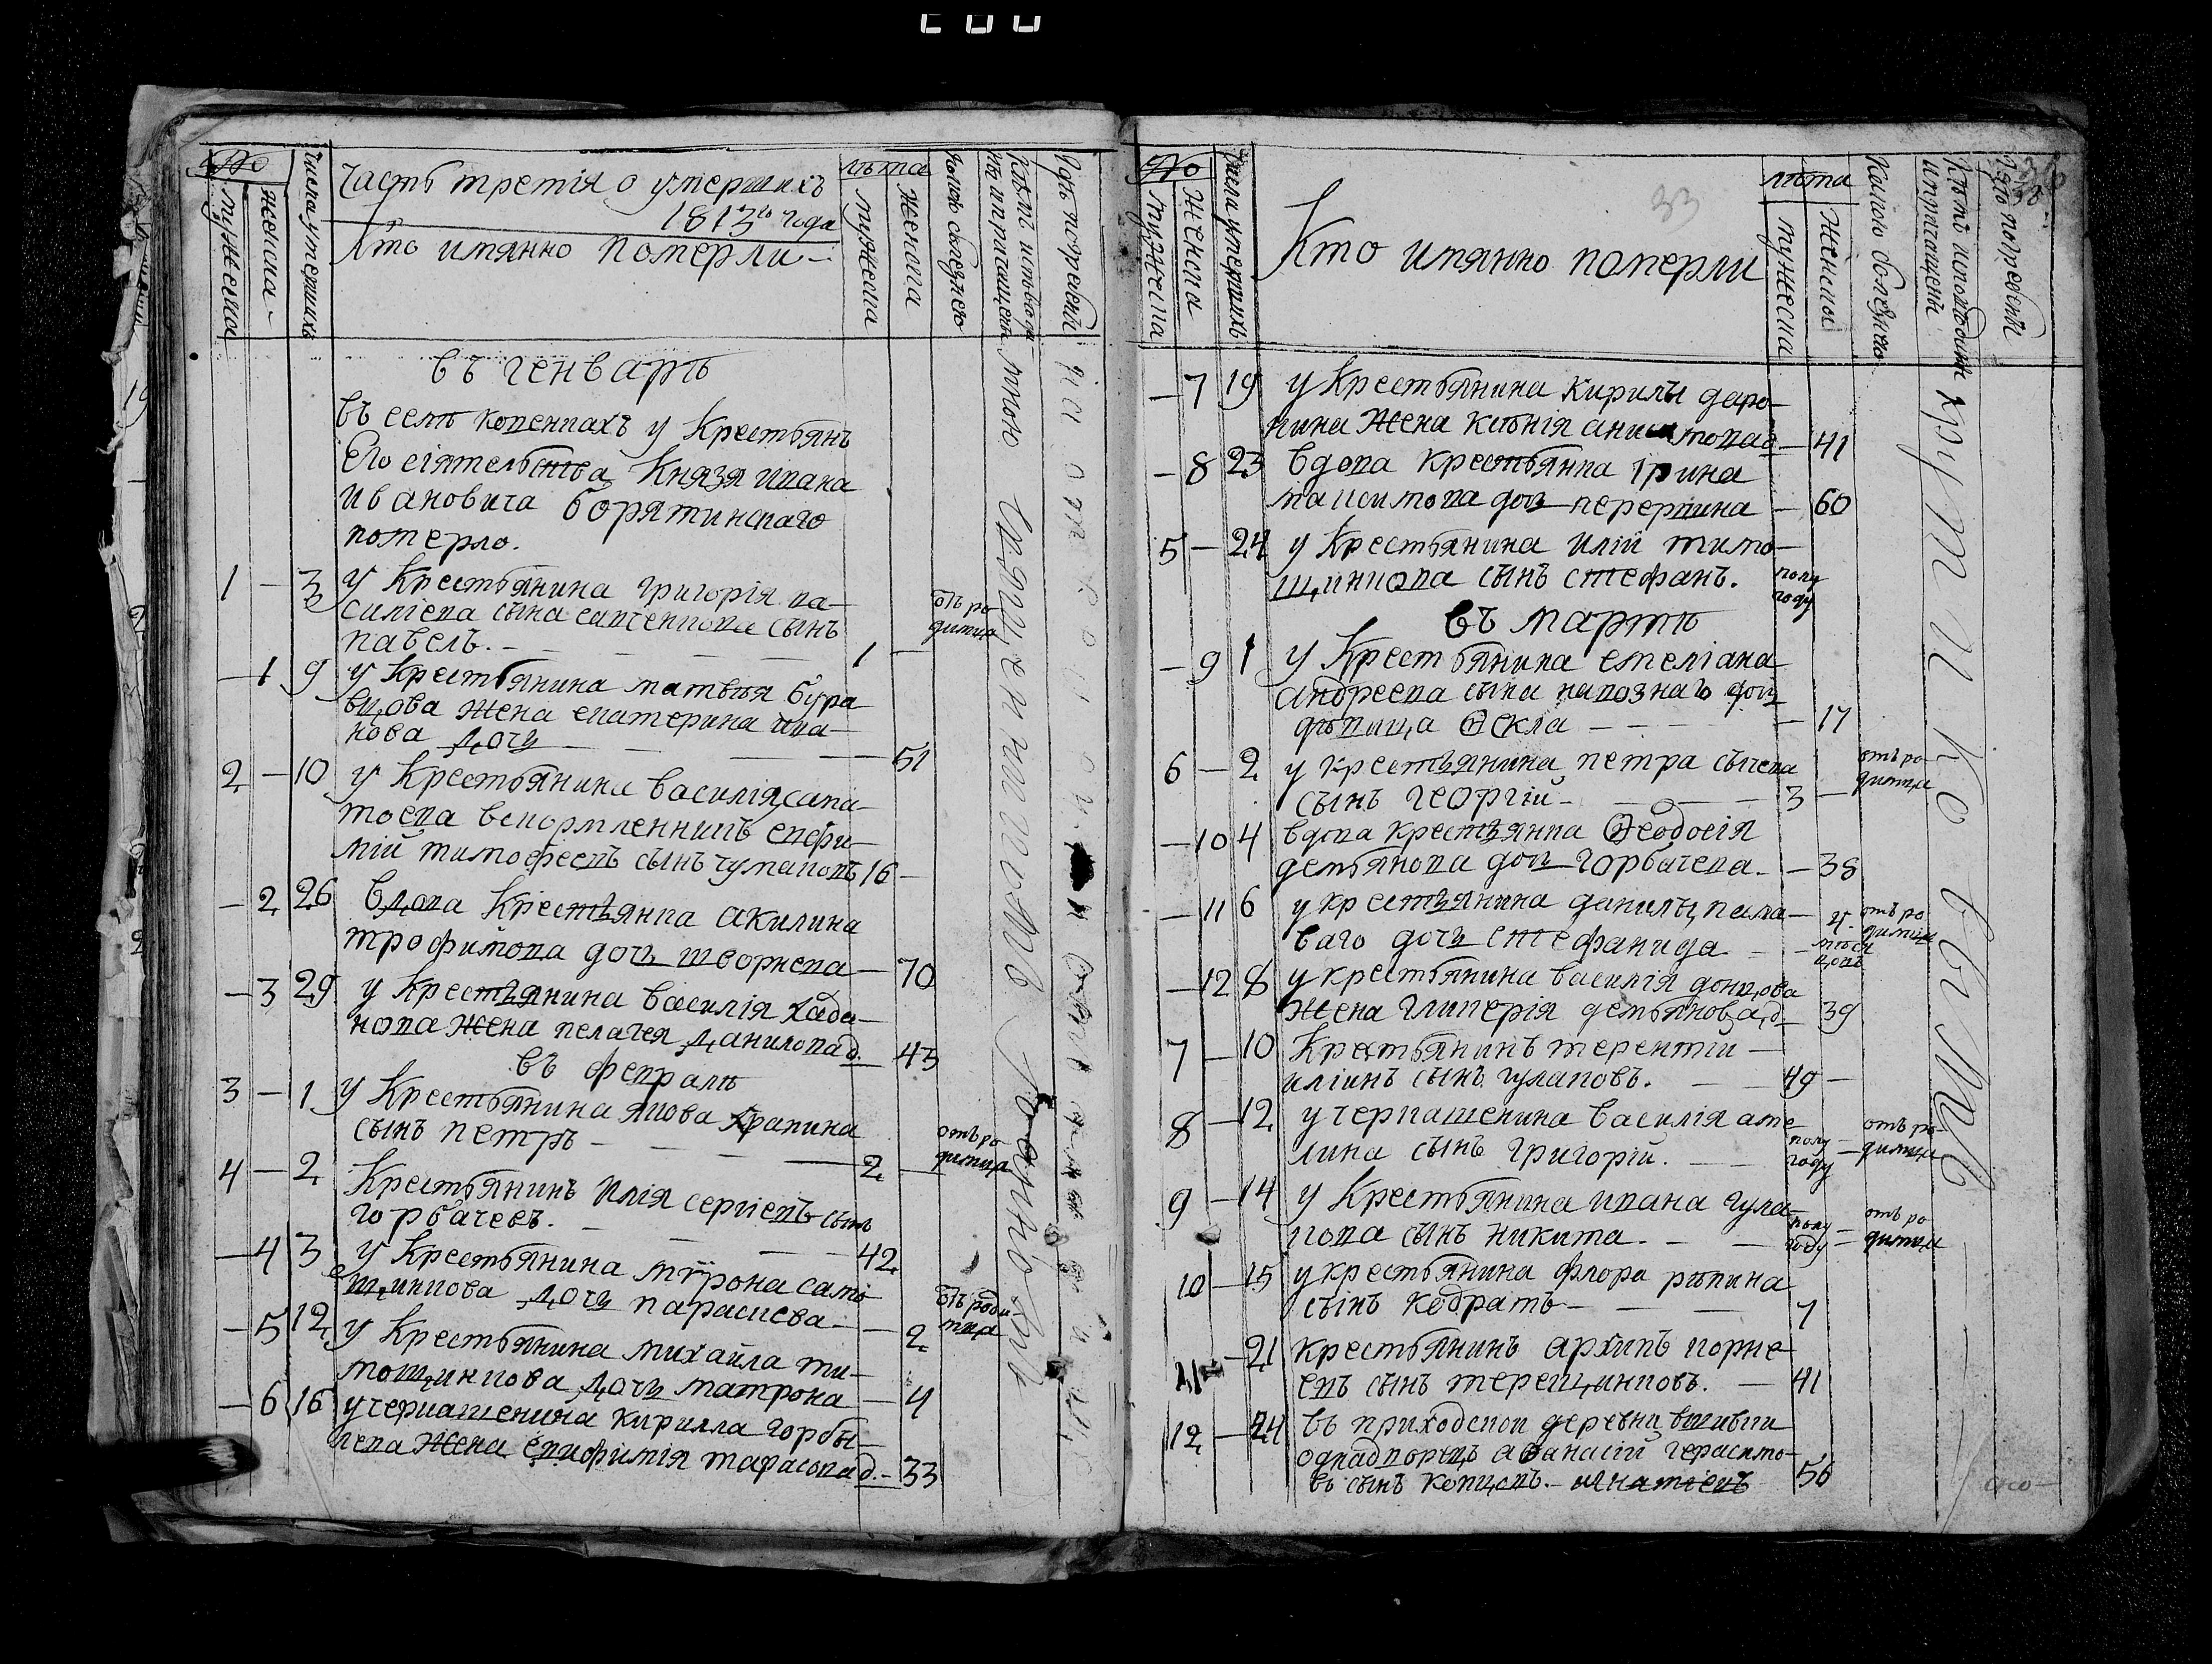 Часть третія о умершихъ
1813го года
Кто имянно померли
№
мужеска
женска
числа умершихъ
лѣта
мужеска
женска
въ генварѣ
въ селѣ копенкахъ у Крестьянъ
Его сіятельства Князя ивана
ивановича борятинскаго
померло.
1 – 3 у Крестьянина григорія ва-
силіева сына сын
павелъ. – 1 –
отъ ро
димца
– 1 9 у Крестьянина матвѣя бура
вцова жена екатерина ива-
нова дочь – 51
2 – 10 у Крестьянина василія сапа-
тоева вскормленникъ евфи-
мій тимофеевъ сынъ чумаковъ 16 –
– 2 26 вдова Крестьянка акилина
трофимова дочь шворнева – 70
– 3 29 у Крестьянина василія хада-
нова жена пелагея данилова д. – 43
въ февралѣ
3 – 1 у Крестьянина якова
сынъ петръ – 2 –
отъ ро
димца
4 – 2 Крестьянинъ илія сергіевъ сынъ
горбачевъ. – 42
– 4 3 у Крестьянина мѵрона само
щинкова дочь параскева – 2
отъ роди
мца
– 5 12 у Крестьянина михайла ти-
мощинкова дочь матрона – 4
– 6 16 у черкашенина кирилла горбы-
лева жена епифимія тарасова д. – 33
священникъ
№
мужеска
женска
числа умершихъ
Кто имянно померли
33
38
лѣта
мужеска
женска
Какою болезнію
– 7 19 у Крестьянина кирилы
жена ксѣнія – 41
– 8 23 вдова крестьянка ірина
максимова дочь перерпина – 60
5 – 24 у Крестьянина иліи тимо-
щинкова сынъ стефанъ. полу
году
въ мартѣ
– 9 1 у Крестьянина емеліана
андреева сына дочь
дѣвица Ѳекла – 17
6 – 2 у крестьянина петра сычева
сынъ георгій – 3 –
отъ ро
димца
– 10 4 вдова крестьянка Ѳеодосія
демьянова дочь горбачева – 38
– 11 6 у крестьянина данилы
ваго дочь стефанида –
отъ ро
димца
– 12 8 у крестьянина василія донцова
жена гликерія демьянова д – 39
7 – 10 Крестьянинъ терентіи
иліинъ сынъ гулаковъ. – 49 –
8 – 12 у черкашенина василія аме
лина сынъ григорій. – полу
году
отъ ро-
димца
9 – 14 у Крестьянина ивана гула-
кова сынъ никита. – полу
году
отъ ро
димца
10 – 15 у крестьянина флора рѣпина
сынъ кодратъ – 7
11 – 21 крестьянинъ архипъ корне
евъ сынъ терещинковъ. – 41
12 – 24 въ приходской деревни
однадворецъ аѳанасій герасимо-
въ сынъ 56